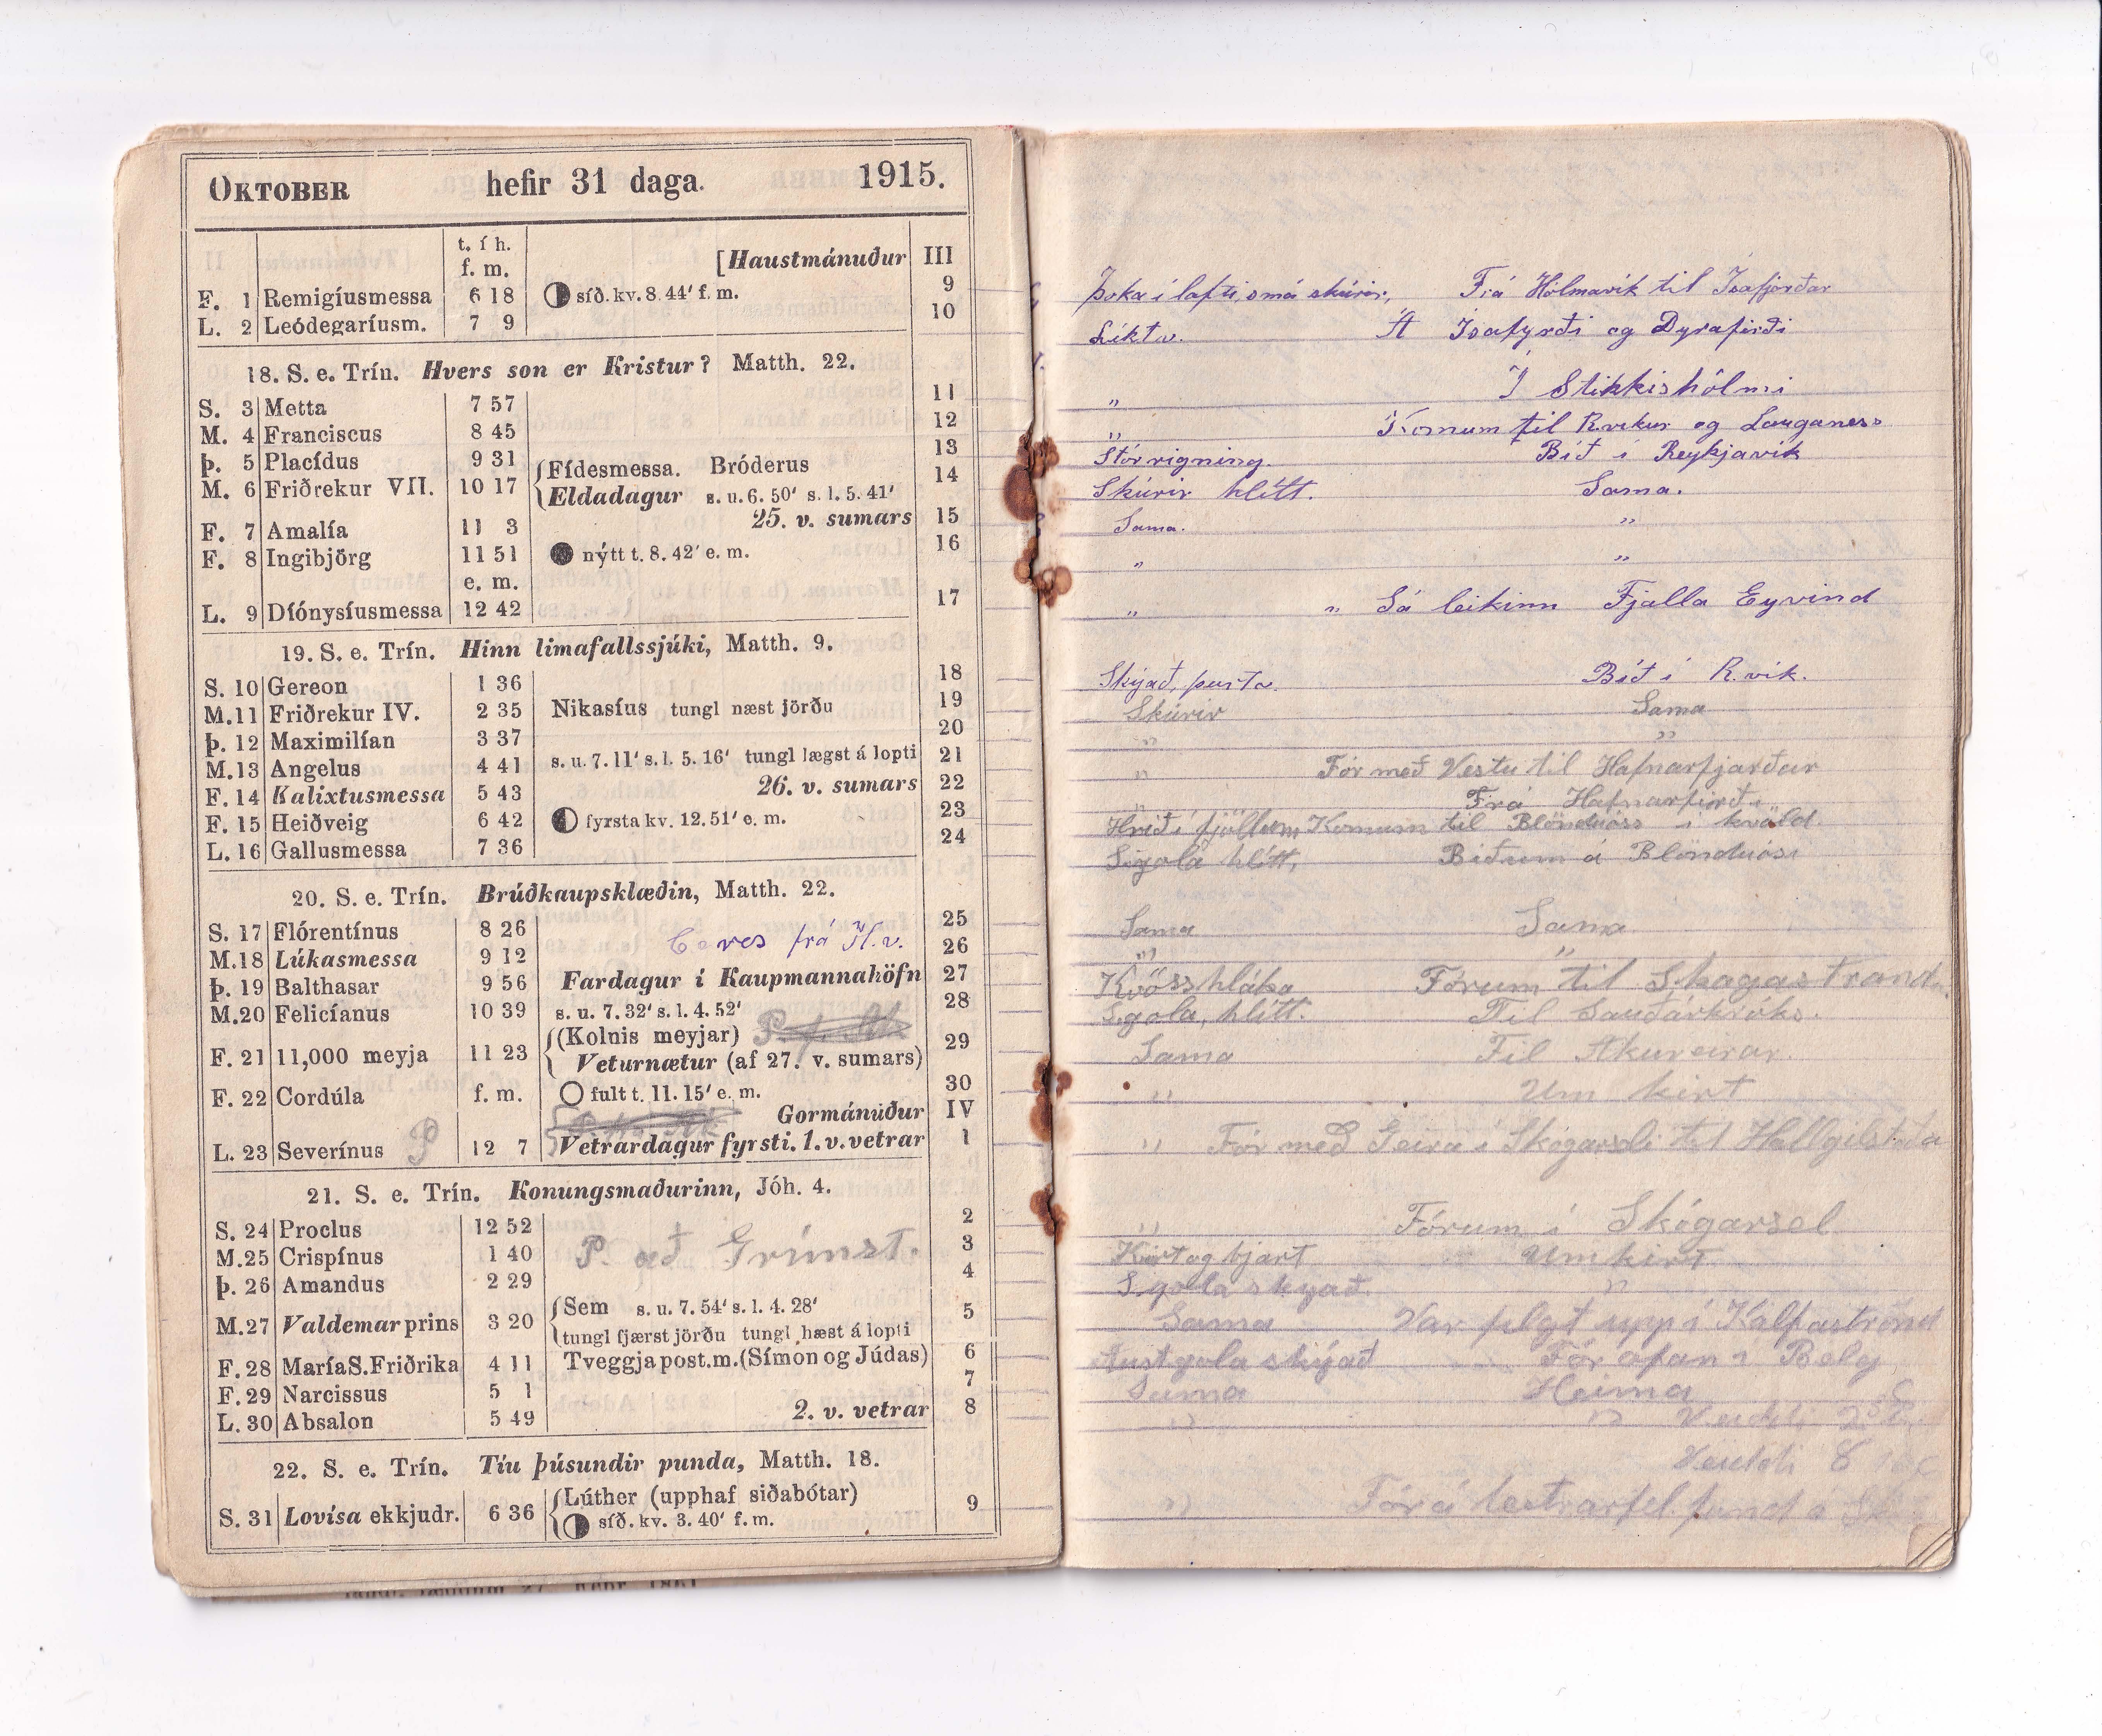 OKTOBER hefir 31 daga. 1915.
t. í h.
f. m. [Haustmánuður III
F. 1 Remigíusmessa 6 18 síð. kv. 8. 44' f. m. 9
L. 2 Leódegaríusm. 7 9 10
18. S. e. Trín. Hvers son er Kristur? Matth. 22.
S. 3 Metta 7 57 11
M. 4 Franciscus 8 45 12
Þ. 5 Placídus 9 31 Fídesmessa. Bróderus 13
M. 6 Friðrekur VII. 10 17 Eldadagur s. u. 6. 50' s. l. 5. 41' 14
25. v. sumars
F. 7 Amalía 11 3 15
F. 8 Ingibjörg 11 51 nýtt t. 8. 42' e. m. 16
e. m.
L. 9 Díónysíusmessa 12 42 17
19. S. e. Trín. Hinn limafallssjúki, Matth. 9.
S. 10 Gereon 1 36 18
M. 11 Friðrekur IV. 2 35 Nikasíus tungl næst jörðu 19
Þ. 12 Maximilían 3 37 20
M. 13 Angelus 4 41 s. u. 7. 11' s. l. 5. 16' tungl lægst á lopti 21
F. 14 Kalixtusmessa 5 43 26. v. sumars 22
F. 15 Heiðveig 6 42 fyrsta kv. 12. 51' e. m. 23
L. 16 Gallusmessa 7 36 24
20. S. e. Trín. Brúðkaupsklæðin, Matth. 22.
S. 17 Flórentínus 8 26 25
Ceres frá H.v.
M. 18 Lúkasmessa 9 12 26
Þ. 19 Balthasar 9 56 Fardagur í Kaupmannahöfn 27
M. 20 Felicíanus 10 39 s. u. 7. 32' s. l. 4. 52' 28
(Kolnis meyjar)
F. 21 11,000 meyja 11 23 Veturnætur (af 27. v. sumars) 29
F. 22 Cordúla f. m. fult t. 11. 15' e. m. 30
Gormánuður IV
L. 23 Severínus P 12 7 Vetrardagur fyrsti. 1. v. vetrar 1
21. S. e. Trín. Konungsmaðurinn, Jóh. 4.
S. 24 Proclus 12 52 2
M. 25 Crispínus 1 40 P. að Grímst. 3
Þ. 26 Amandus 2 29 4
Sem s. u. 7. 54' s. l. 4. 28'
M. 27 Valdemar prins 3 20 tungl fjærst jörðu tungl hæst á lopti 5
F. 28 María S. Friðrika 4 11 Tveggjapost.m. (Símon og Júdas) 6
F. 29 Narcissus 5 1 7
L. 30 Absalon 5 49 2. v. vetrar 8
22. S. e. Trín. Tíu þúsundir punda, Matth. 18.
Lúther (upphaf siðabótar)
S. 31 Lovísa ekkjudr. 6 36 síð. kv. 3. 40' f. m. 9
Þoka í lofti, smá skúrir, Frá Hólmavík til Ísafjarðar
Líkt v. Á Ísafyrði og Dyrafirði
" Í Stikkishólmi
" Komum til R.vikur og Lauganess
Stórrigning. Bið í Reykjavík
Skúrir hlítt. Sama.
Sama. "
" "
" " Sá leikinn Fjalla Eyvind
Skýað, þurta. Bið í R.vík.
Skúrir Sama
" "
" Fór með Vestu til Hafnarfjarðar
" Frá Hafnarfirði
Hríð í fjöllum Komum til Blönduóss í kvöld
S.gola hlítt, Biðum á Blönduósi
Sama Sama
" "
Kvösshláka Fórum til Skagastrand.
S.gola, hlítt. Til Sauðárkróks.
Sama Til Akureirar.
" Um kirt
" Fór með Geira í Skógarseli til Hallgilstaða
" Fórum í Skógarsel
Kirt og bjart Um kirt
S.gola skyað. "
Sama Var fylgt upp í Kálfaströnd
Austgola skýað Fór ofan í Belg
Sama Heima
" "
8
" Fór á lestrarfél. fund á